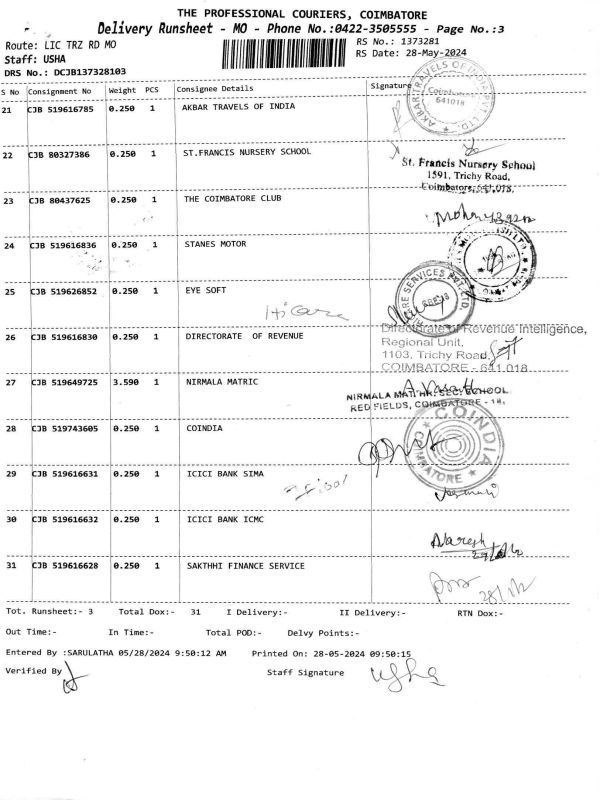 THE PROFESSIONAL COURIERS, COIMBATORE
Delivery Runsheet - MO - Phone No.:0422-3505555 - Page No.:3
Route: LIC TRZ RD MO
RS No.: 1373281
Staff: USHA
RS Date: 28-May-2024
DRS No.: DCJB137328103
S No Consignment No Weight PCS Consignee Details Signature
21 CJB 519616785 0.250 1 AKBAR TRAVELS OF INDIA
AKBAR TRAVELS OF INDIA PVT. LTD.
Coimbatore
641018
22 CJB 80327386 0.250 1 ST.FRANCIS NURSERY SCHOOL
St. Francis Nursery School
1591, Trichy Road,
Coimbatore, 641,018.
23 CJB 80437625 0.250 1 THE COIMBATORE CLUB
24 CJB 519616836 0.250 1 STANES MOTOR
25 CJB 519626852 0.250 1 EYE SOFT
Hi Care
CARE SERVICES PVT LTD
26 CJB 519616830 0.250 1 DIRECTORATE OF REVENUE
Directorate of Revenue Intelligence,
Regional Unit,
1103, Trichy Road,
COIMBATORE - 641 018
27 CJB 519649725 3.590 1 NIRMALA MATRIC
NIRMALA MAT. HR. SEC. SCHOOL
RED FIELDS, COIMBATORE - 18.
28 CJB 519743605 0.250 1 COINDIA
COINDIA
COIMBATORE
29 CJB 519616631 0.250 1 ICICI BANK SIMA
30 CJB 519616632 0.250 1 ICICI BANK ICMC
Naresh
31 CJB 519616628 0.250 1 SAKTHHI FINANCE SERVICE
Tot. Runsheet:- 3 Total Dox:- 31 I Delivery:- II Delivery:- RTN Dox:-
Out Time:- In Time:- Total POD:- Delvy Points:-
Entered By :SARULATHA 05/28/2024 9:50:12 AM Printed On: 28-05-2024 09:50:15
Verified By Staff Signature
Usha